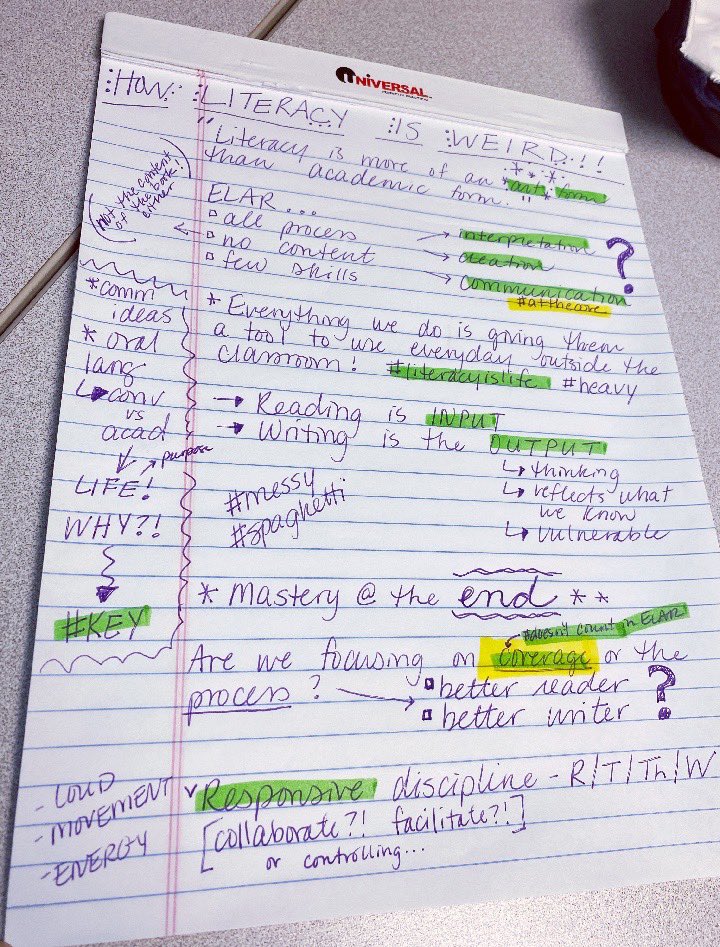 UNIVERSAL
HOW LITERACY IS WEIRD!!
"Literacy is more of an *art* form
than academic form."
(not the content
of the book!
either)
ELAR...
all process
no content
few skills
→ interpretation
→ creation
→ communication
?
#atthecore
*comm
ideas
*oral
lang
↳ conv
vs
acad
↗ purpose
LIFE!
WHY?!
#KEY
* Everything we do is giving them
a tool to use everyday outside the
classroom! #literacyislife #heavy
→ Reading is INPUT
→ Writing is the OUTPUT
↳ thinking
↳ reflects what
we know
↳ vulnerable
#messy
#spaghetti
* Mastery @ the end **
#doesn't count in ELAR
Are we focusing on coverage or the
process? → better reader
better writer ?
- LOUD
- MOVEMENT
- ENERGY
Responsive discipline - R/T/Th/W
[collaborate?! facilitate?!]
or controlling...